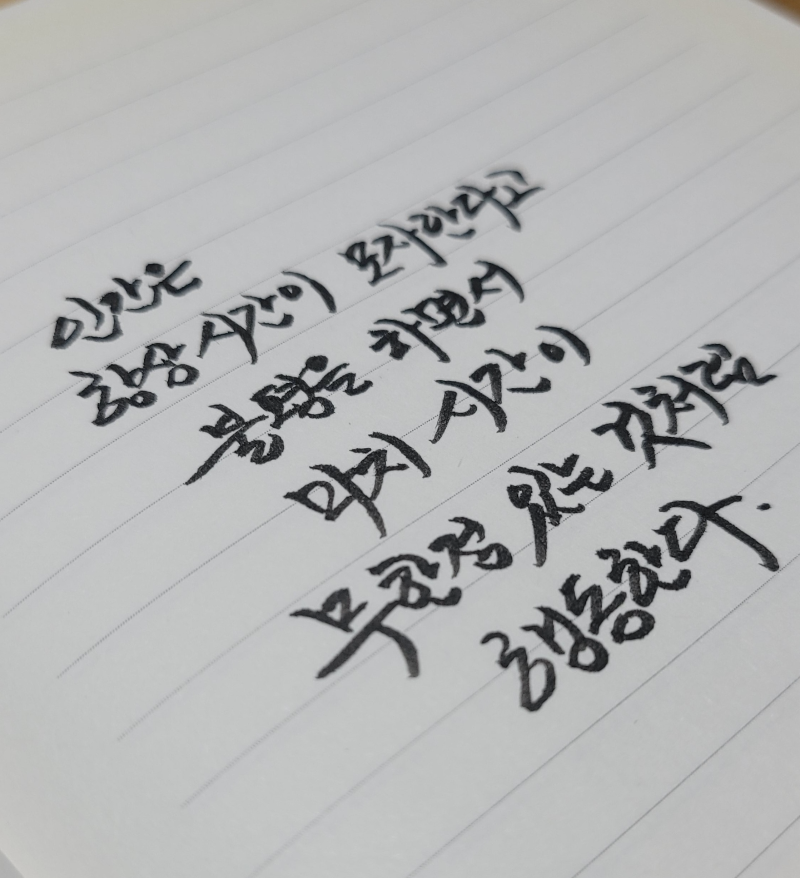 인간은
항상 시간이 모자란다고
불평을 하면서
마치 시간이
무한정 있는 것처럼
행동한다.